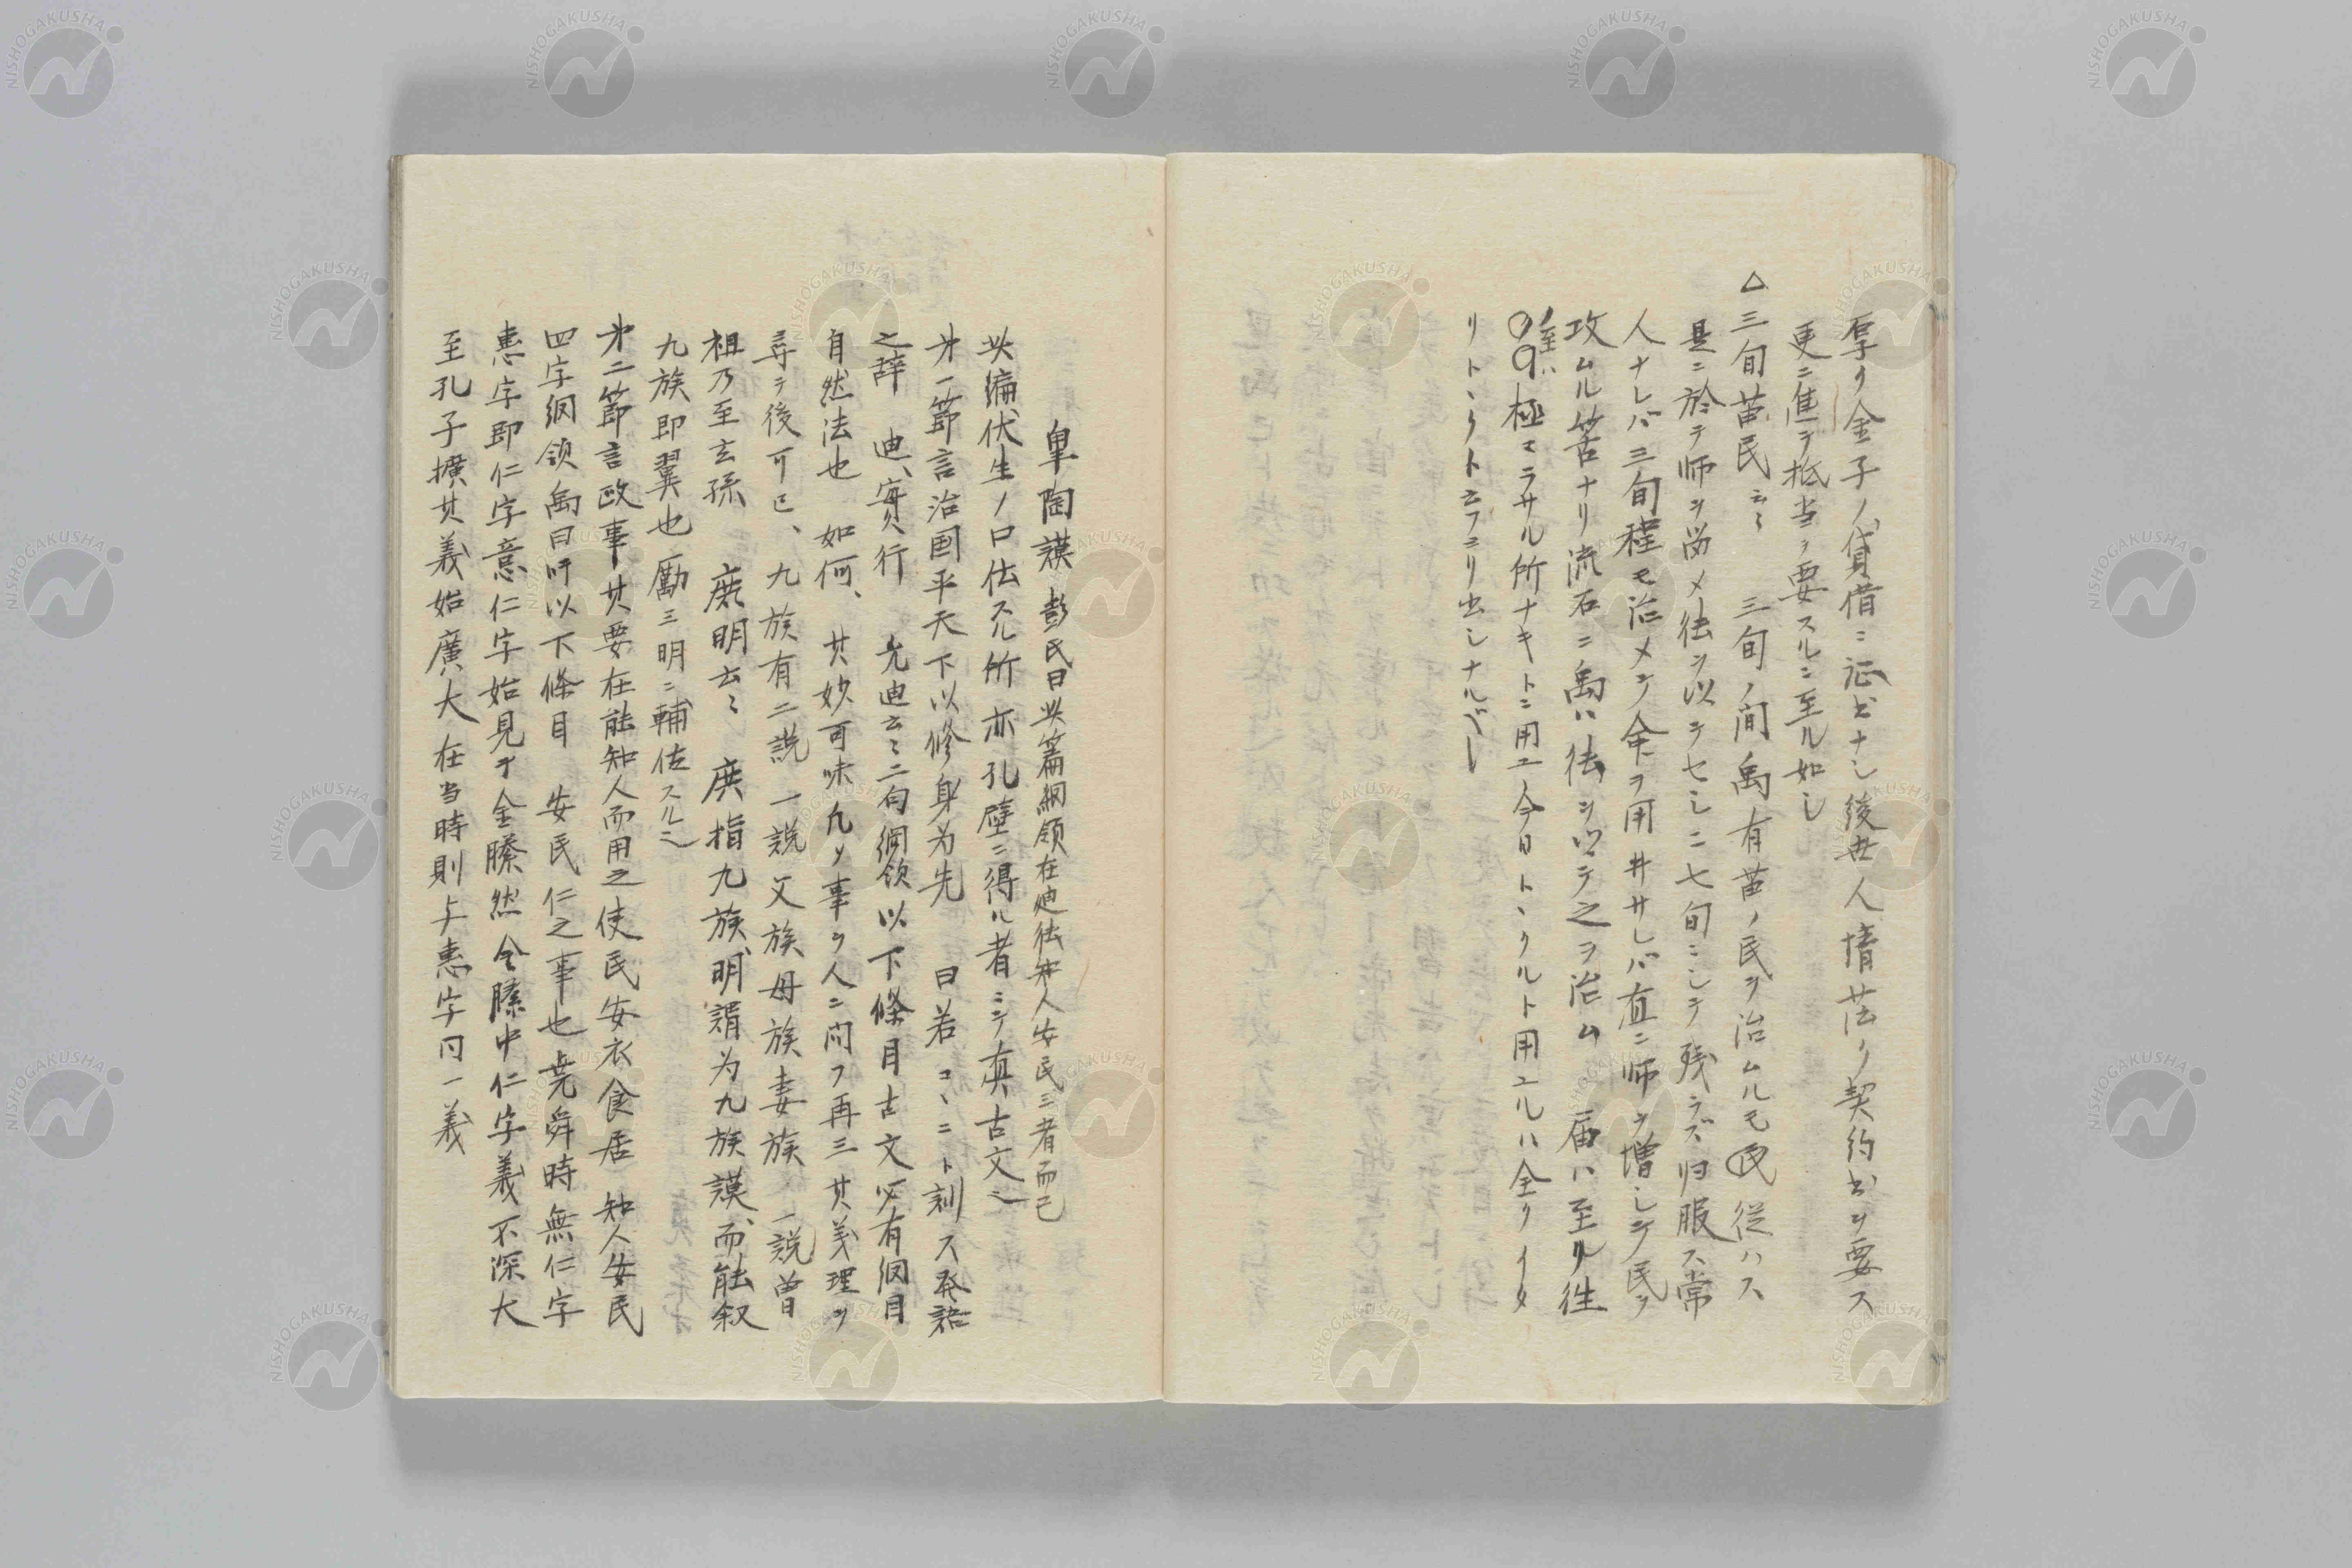 厚ク金子ノ貸借ニ証書ナシ後世人情薄ク契約書ヲ要ス
更ニ進テ抵当ヲ要スルニ至ル如シ
△三旬苗民云〻 三旬ノ間禹有苗ノ民ヲ治ムルモ民従ハス
是ニ於テ师ヲ収メ徳ヲ以テセシニ七旬ニシテ残ラズ归服ス常
人ナレバ三旬程モ治メテ命ヲ用井サレバ直ニ师ヲ増シテ民ヲ
攻ムル筈ナリ流石ニ禹ハ徳ヲ以テ之ヲ治ム 届ハ至ル徃
至ハ極マラサル所ナキトニ用ユ今日トヽクルト用ユルハ全クイタ
リトヽクト云フヨリ出シナルベシ
皐陶謨 彭氏曰此篇綱領在迪徳知人安民三者而已
此編伏生ノ口伝スル所亦孔壁ニ得ル者ニテ真古文也
第一節言治国平天下以修身为先 曰若 コヽニト訓ス発語
之辞 迪、實行 允迪云〻二句綱領以下條目古文必有綱目
自然法也 如何、其妙可味凡ソ事ヲ人ニ問フ再三其義理ヲ
尋テ後可已、九族有二説 一説父族母族妻族 一説曽
祖乃至玄孫 庶明云〻 庶指九族、明謂为九族謨、而能叙
九族即翼也 勵ミ明ニ輔佐スル也
第二節言政事其要在能知人而用之使民安衣食居 知人安民
四字綱領禹曰吁以下條目 安民仁之事也尭舜時無仁字
惠字即仁字意仁字始見于金縢然金縢中仁字義不深大
至孔子擴其義始廣大在当時則与惠字同一義